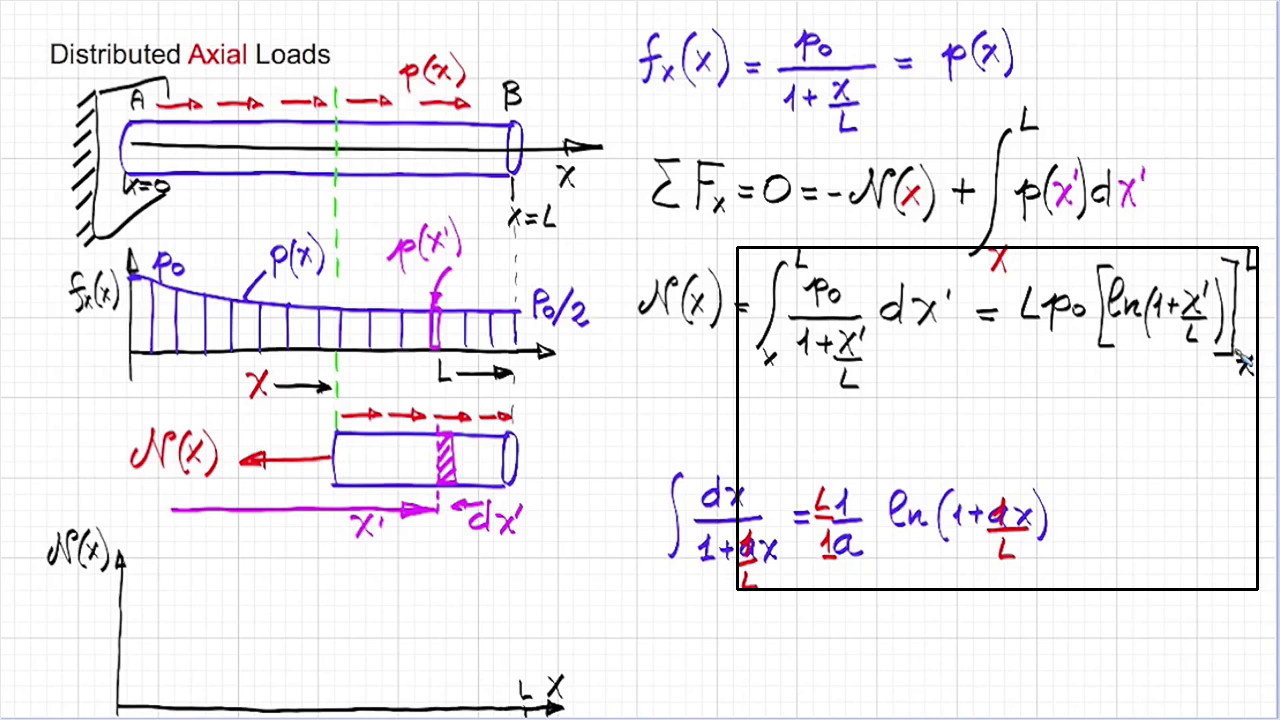 Distributed Axial Loads
A
p(x)
B
x=0
x
x=L
fx(x)
p0
p(x)
p(x')
p0/2
x
L
N(x)
x'
dx'
N(x)
L
x
fx(x) = p0 / (1 + x/L) = p(x)
∑Fx = 0 = -N(x) + ∫_x^L p(x')dx'
N(x) = ∫_x^L p0 / (1 + x'/L) dx' = Lp0 [ln(1+x'/L)]_x^L
∫ dx / (1+ax) = 1/a ln(1+ax)
1
L
L
1
1
L